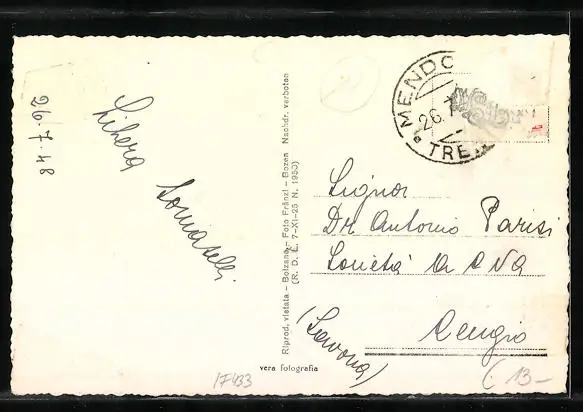 26.7.48
Libera
Tomaselli
Riprod. vietata – Bolzano – Foto Fränzl – Bozen Nachdr. verboten
(R. D. E. 7-XI-25 N. 1950)
MENDO
26.7
TRE
Signor
Dr Antonio Parisi
Società A C N A
Cengio
(Savona)
vera fotografia
17433
(13–